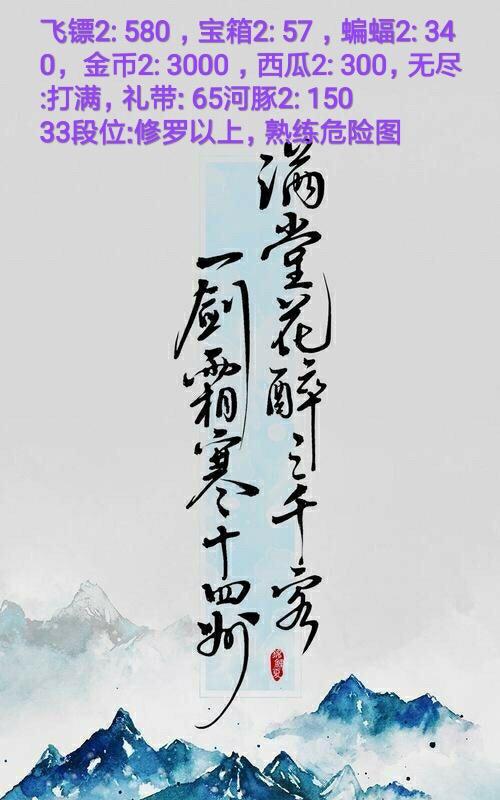 飞镖2: 580，宝箱2: 57，蝙蝠2: 34
0，金币2: 3000，西瓜2: 300，无尽
:打满，礼带: 65河豚2: 150
33段位:修罗以上，熟练危险图
满堂花醉三千客
一剑霜寒十四州